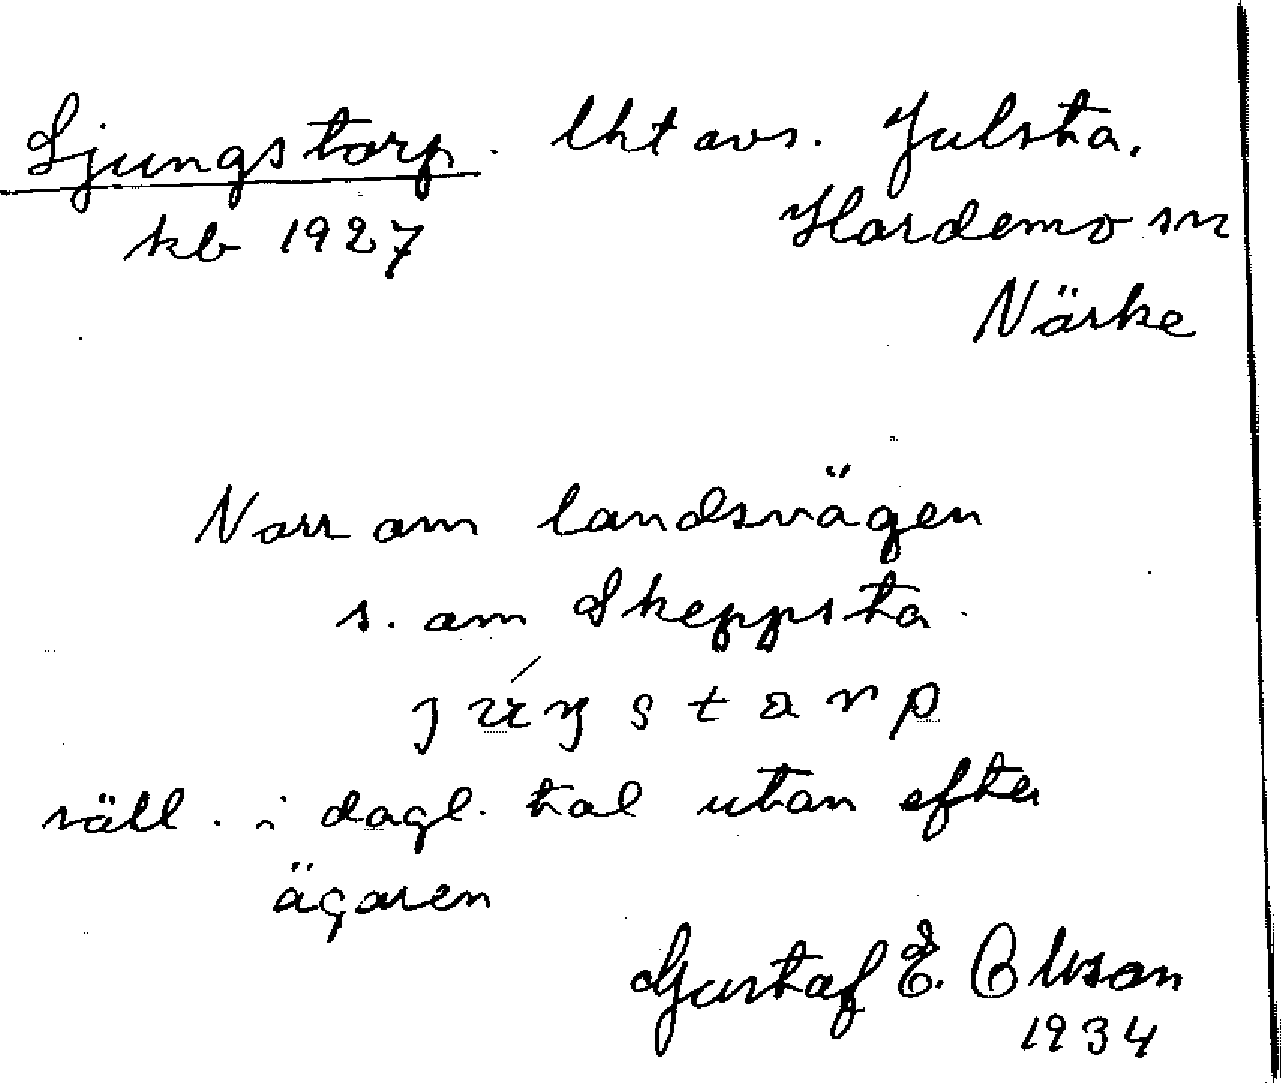 Ljungstorp. lht avs. Julsta.
kb 1927 Hardemo sn
Närke
Norr om landsvägen
s. om Skeppsta.
säll. i dagl. tal utan efter
ägaren
Gustaf E. Olsson
1934